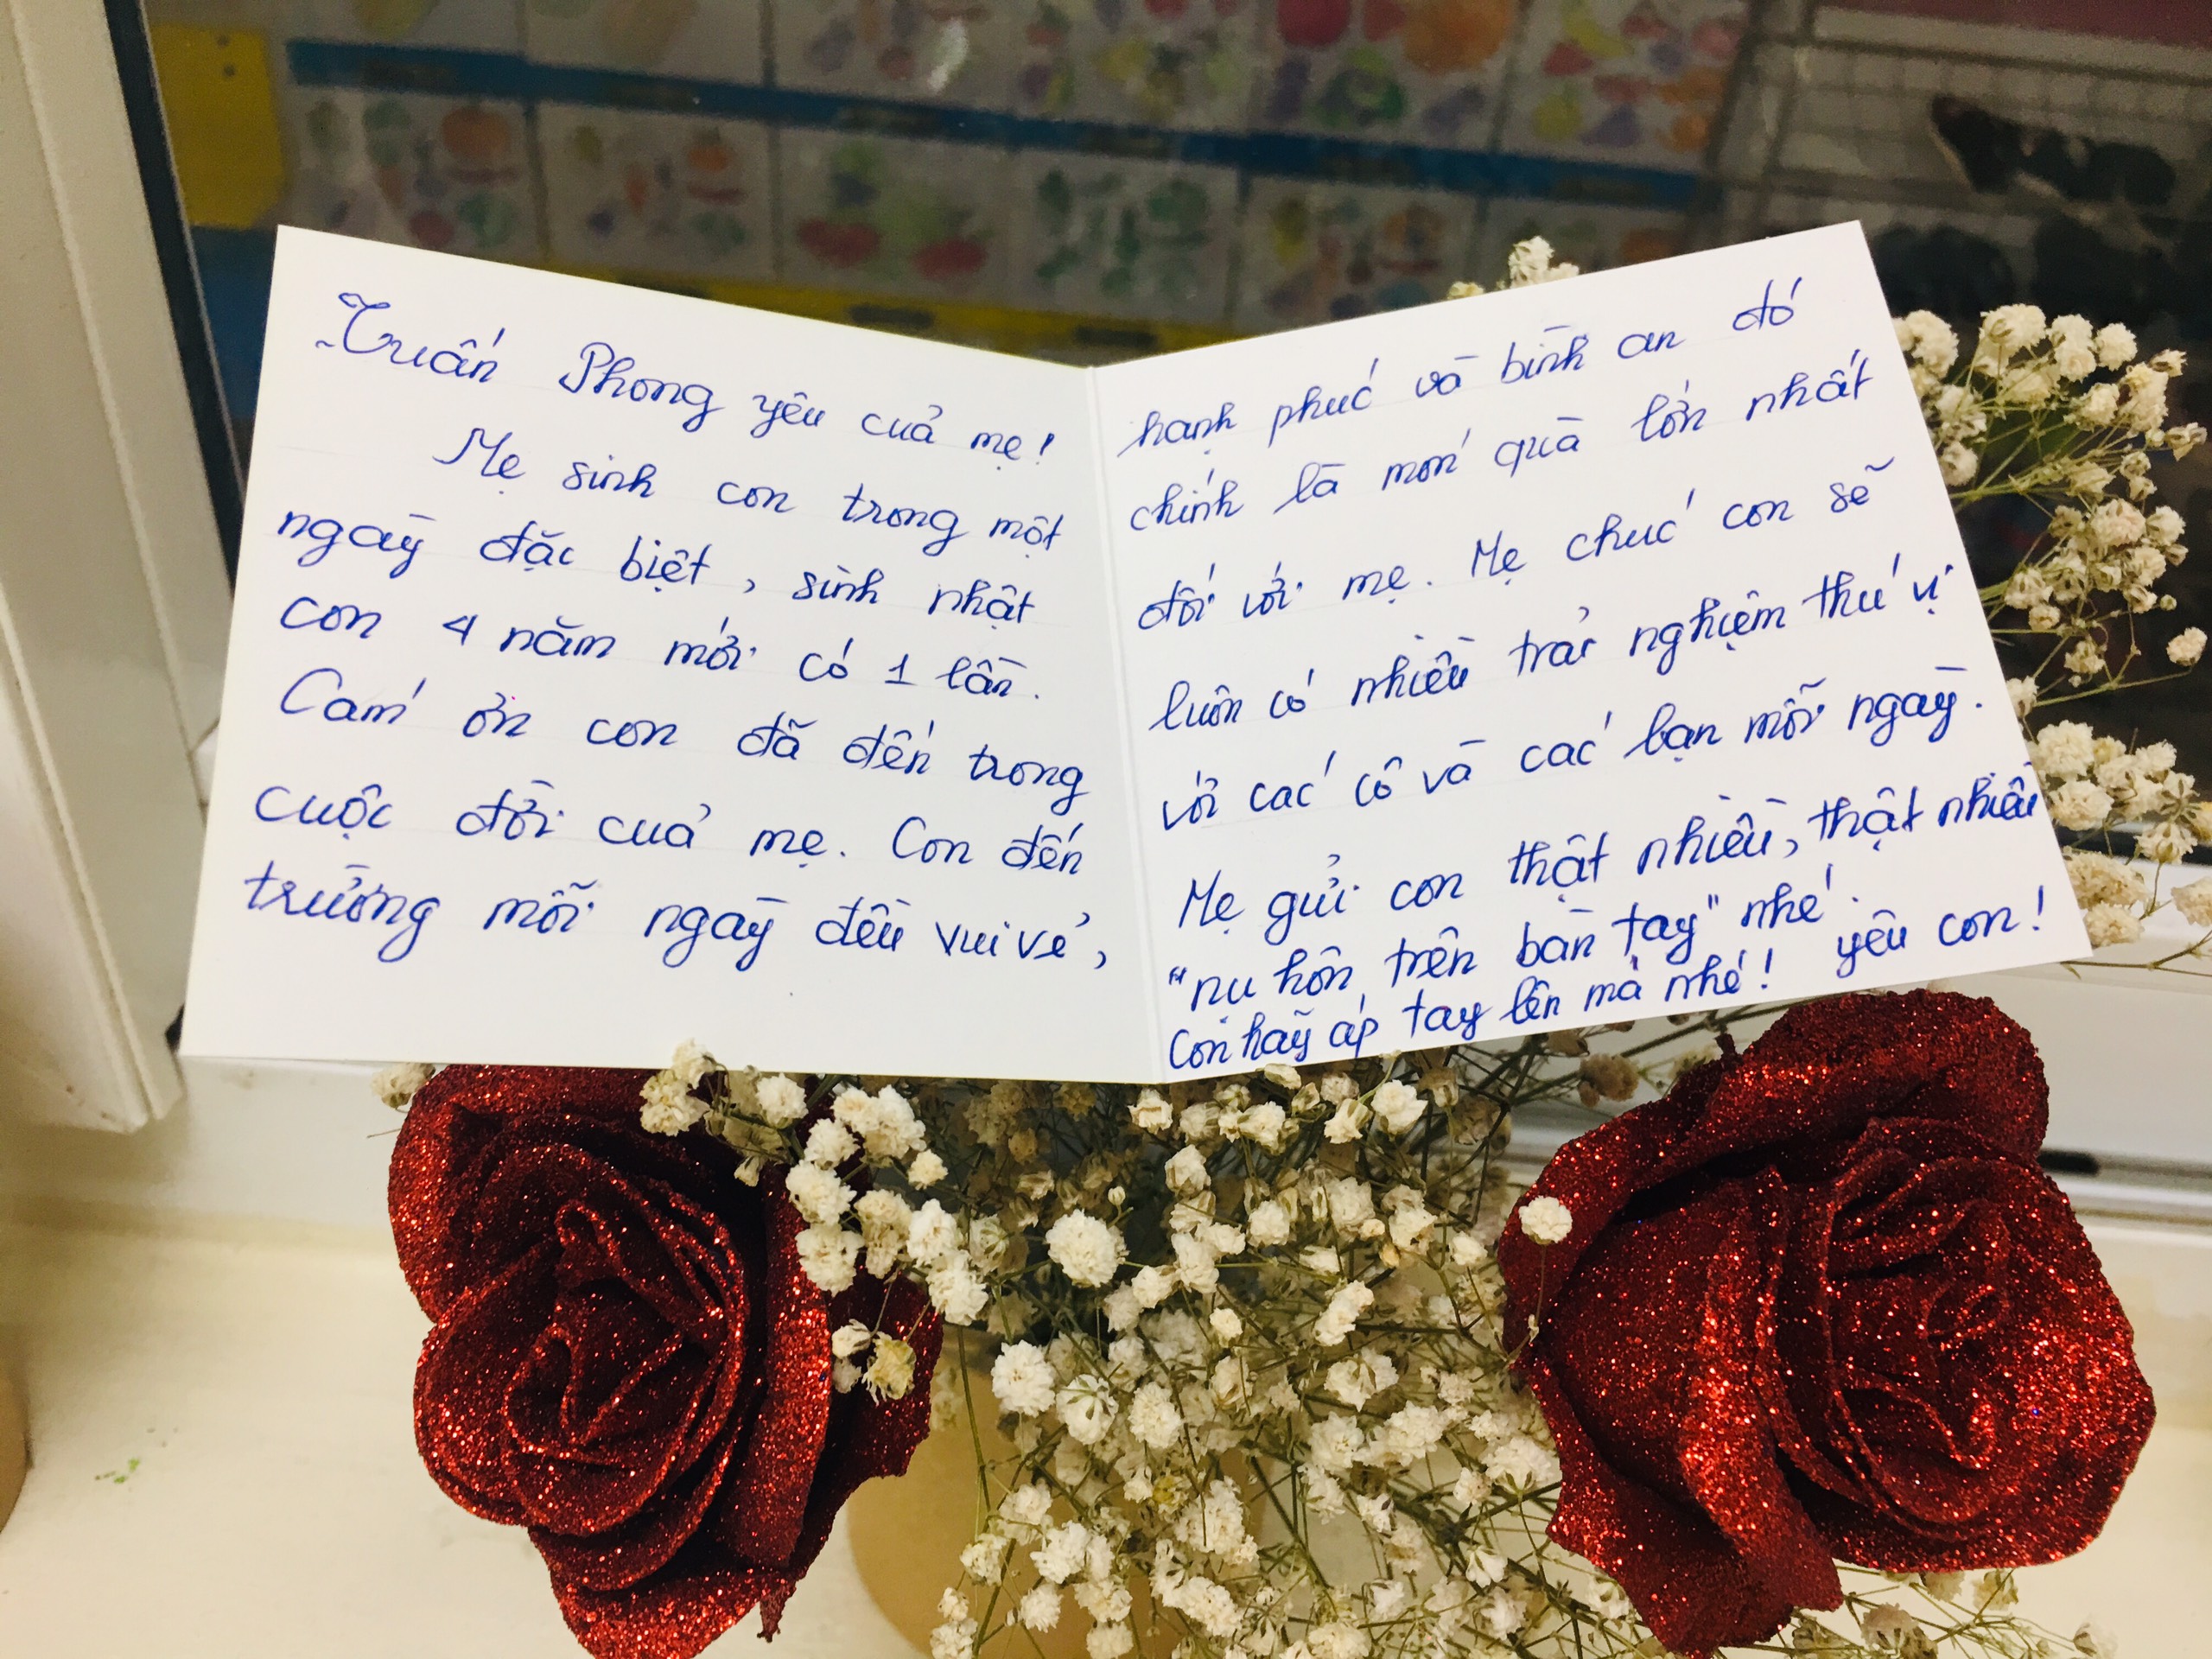 Tuấn Phong yêu của mẹ!
Mẹ sinh con trong một
ngày đặc biệt, sinh nhật
con 4 năm mới có 1 lần.
Cám ơn con đã đến trong
cuộc đời của mẹ. Con đến
trường mỗi ngày đều vui vẻ,
hạnh phúc và bình an đó
chính là món quà lớn nhất
đối với mẹ. Mẹ chúc con sẽ
luôn có nhiều trải nghiệm thú vị
với các cô và các bạn mỗi ngày.
Mẹ gửi con thật nhiều, thật nhiều
"nụ hôn trên bàn tay" nhé.
Con hãy áp tay lên má nhé! yêu con!